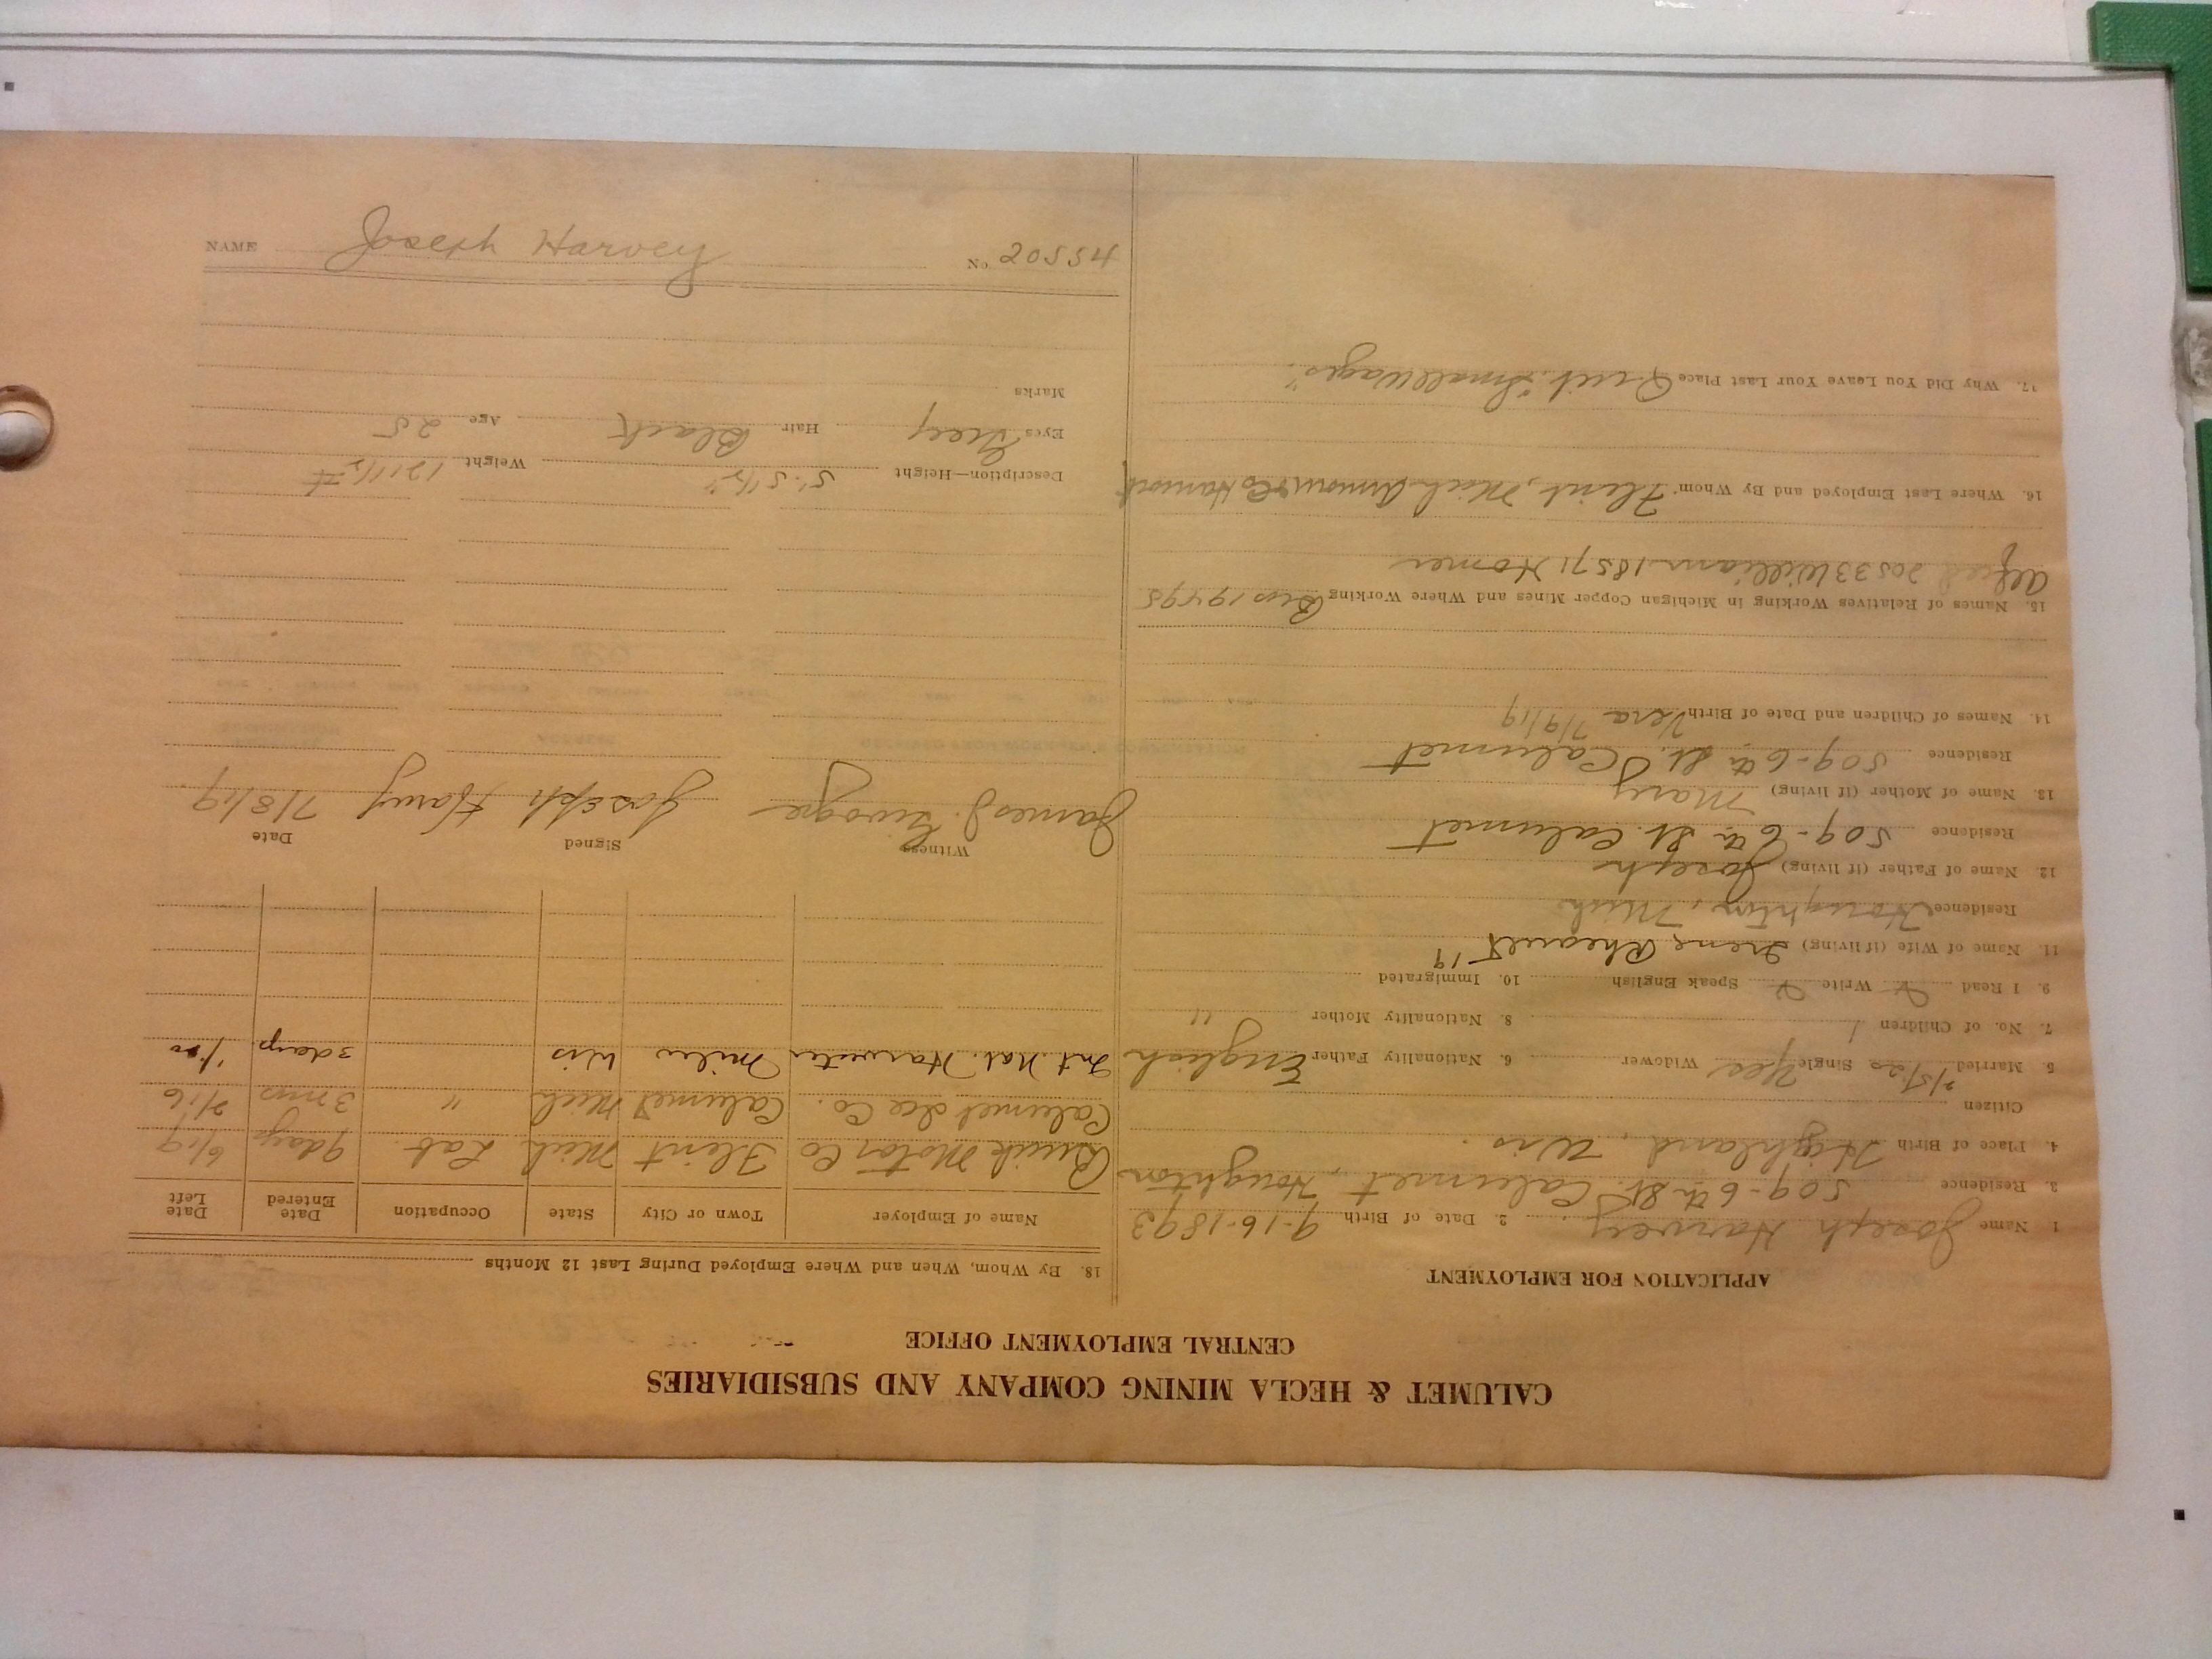 CALUMET & HECLA MINING COMPANY AND SUBSIDIARIES
CENTRAL EMPLOYMENT OFFICE
APPLICATION FOR EMPLOYMENT
1. Name Joseph Harvey. 2. Date of Birth 9-16-1893
3. Residence 509-6th St. Calumet, Houghton
4. Place of Birth Highland, Wis.
Citizen
5. Married Single Yes Widower 6. Nationality Father English
7. No. of Children 1 8. Nationality Mother "
9. I Read Write Speak English 10. Immigrated
11. Name of Wife (if living) Irene 19
Residence Houghton, Mich
12. Name of Father (if living) Joseph
Residence 509-6th St. Calumet
13. Name of Mother (if living) Mary
Residence 509-6th St. Calumet
14. Names of Children and Date of Birth Vera 7/9/19
15. Names of Relatives Working in Michigan Copper Mines and Where Working Ben 19495
Alfred 20533 William 18571 Homer
16. Where Last Employed and By Whom Flint, Mich
17. Why Did You Leave Your Last Place Quit. "Small Wages"
18. By Whom, When and Where Employed During Last 12 Months
Name of Employer Town or City State Occupation Date Entered Date Left
Buick Motor Co Flint Mich Lab. 9 days 6/19
Calumet Ice Co. Calumet Mich " 3 mos 2/16
Int. Nat. Harvester Milw Wis 3 days
Witness Signed Date
James J. Joseph Harvy 7/8/19.
Description—Height 5'.5 1/2" Weight 121 1/2 #
Eyes Grey Hair Black Age 25
Marks
NAME Joseph Harvey No. 20554